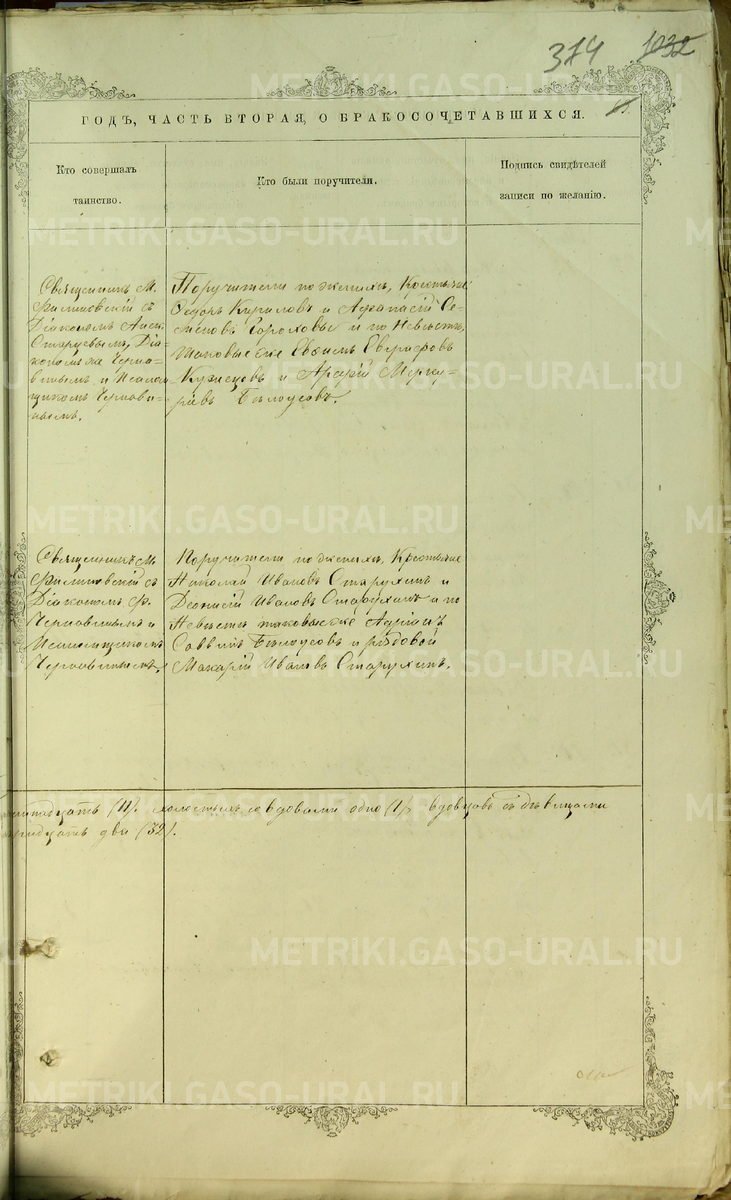 374 1032
ГОДЪ, ЧАСТЬ ВТОРАЯ, О БРАКОСОЧЕТАВШИХСЯ.
Кто совершалъ
таинство.
Кто были поручители.
Подпись свидѣтелей
записи по желанію.
Священникъ М.
Филиповскій съ
Діакономъ
Старцевымъ, Діа-
кономъ же Черна-
винымъ и Псалом
щикомъ Чернави-
нымъ.
Поручители по женихѣ, Крестьяне
Ѳедоръ Кириловъ и Афанасій Се-
меновъ Гороховы и по Невѣстѣ,
таковые же Ефимъ Евграфовъ
Кузнецовъ и Аркадій Мерку-
рьевъ Бѣлоусовъ.
Священникъ М.
Филиповскій съ
Діакономъ Ф.
Чернавинымъ и
Псаломщикомъ
Чернавинымъ.
Поручители по женихѣ, Крестьяне
Николай Ивановъ Старухинъ и
Деонисій Ивановъ Старухинъ и по
Невѣстѣ таковые же
Саввинъ Бѣлоусовъ и рядовой
Макарій Ивановъ Старухинъ.
(11). холостымъ со вдовами одно (1), вдовцовъ съ дѣвицами
тридцать два (32).
METRIKI.GASO-URAL.RU